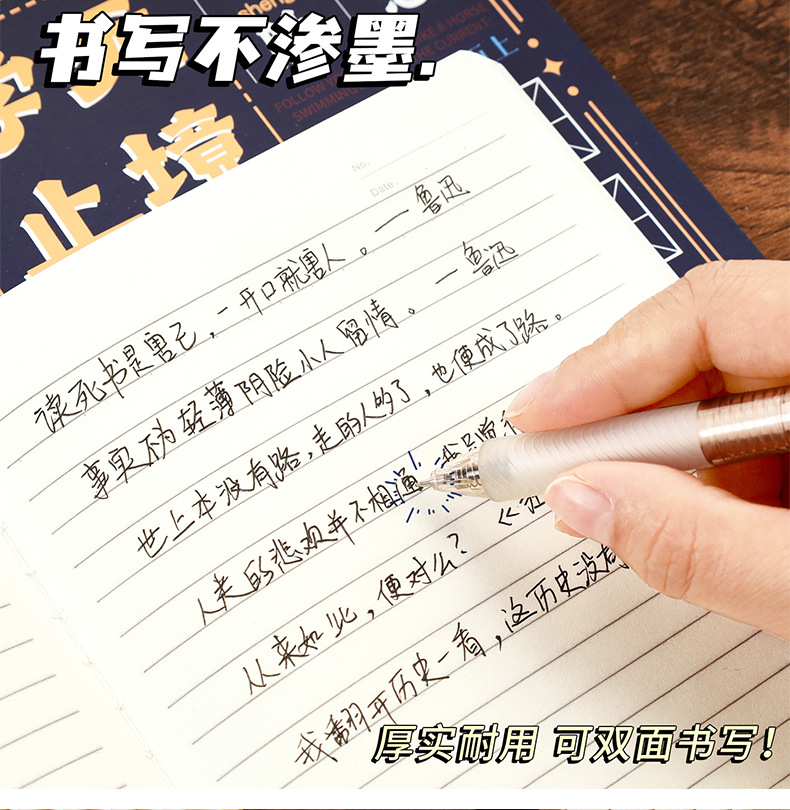 书写不渗墨.
sheng
KE A HORSE
HE CURRENT
FOLLOW
SWIMMING
上
学无
止境
No.
Date.
读死书是害己，一开口就害人。—鲁迅
事实不为轻薄阴险小人留情。—鲁迅
世上本没有路，走的人的了，也便成了路。
人类的悲欢并不相通 我只觉
从来如此，便对么？《狂
我翻开历史一看，这历史没有
厚实耐用 可双面书写！